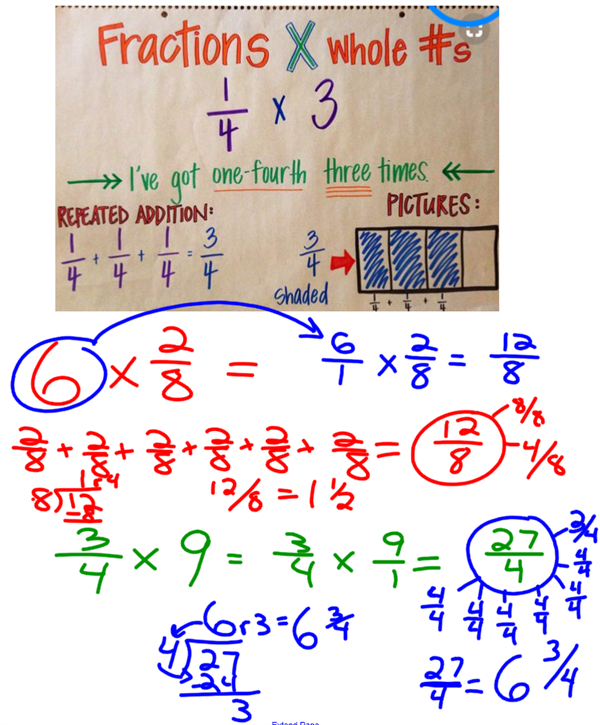 Fractions X whole #s
1/4 x 3
I've got one-fourth three times.
REPEATED ADDITION:
1/4 + 1/4 + 1/4 = 3/4
PICTURES:
3/4
shaded
1/4 + 1/4 + 1/4
6 x 2/8 =
6/1 x 2/8 = 12/8
2/8 + 2/8 + 2/8 + 2/8 + 2/8 + 2/8 = 12/8
8/8
4/8
1 r 4
8)12
-8
12/8 = 1 1/2
3/4 x 9 = 3/4 x 9/1 = 27/4
3/4
4/4
4/4
4/4 4/4 4/4 4/4
6 r 3 = 6 3/4
4)27
-24
3
27/4 = 6 3/4